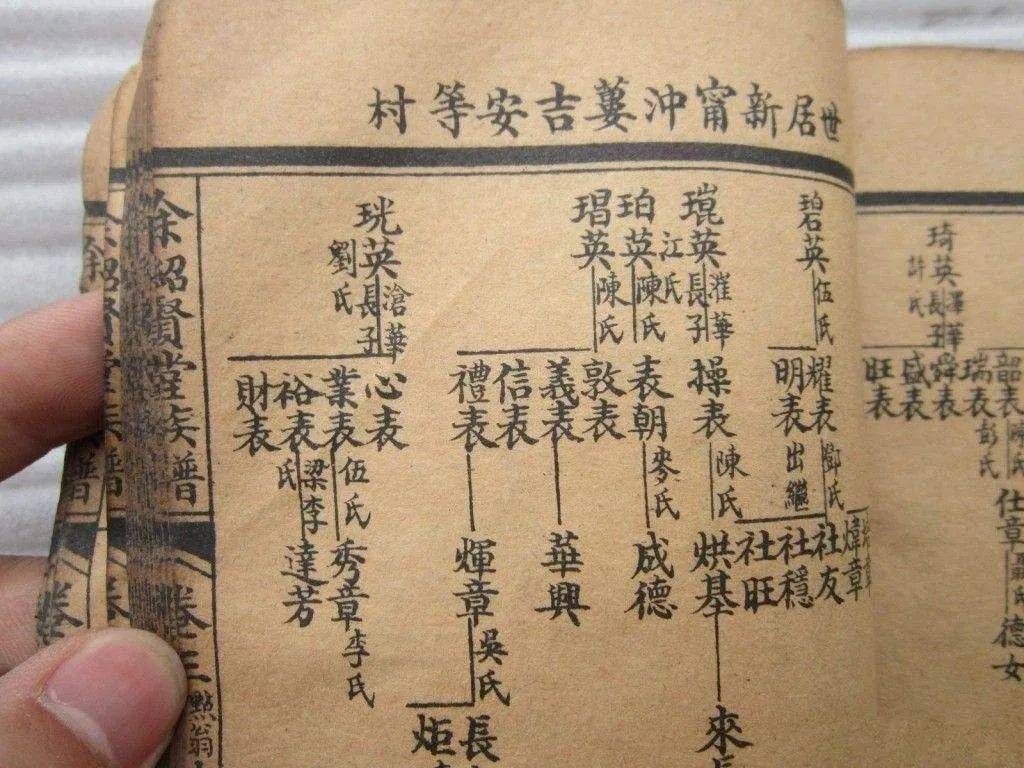 世居新甯沖蔞吉安等村
琦英
澤華長子
許氏
韶表
陳氏
瑞表
彭氏
舜表
盛表
旺表
仕章
德女
碧英
伍氏
耀表
鄧氏
明表
出繼
煒章
社友
社穩
社旺
英
漼華長子
江氏
操表
陳氏
烘基
來
珀英
陳氏
表朝
麥氏
成德
琩英
陳氏
敦表
義表
華興
信表
禮表
輝章
吳氏
長
炬
珖英
滄華長子
劉氏
心表
業表
伍氏
秀章
李氏
裕表
梁李氏
達芳
財表
余紹賢堂族譜
卷三
點翁